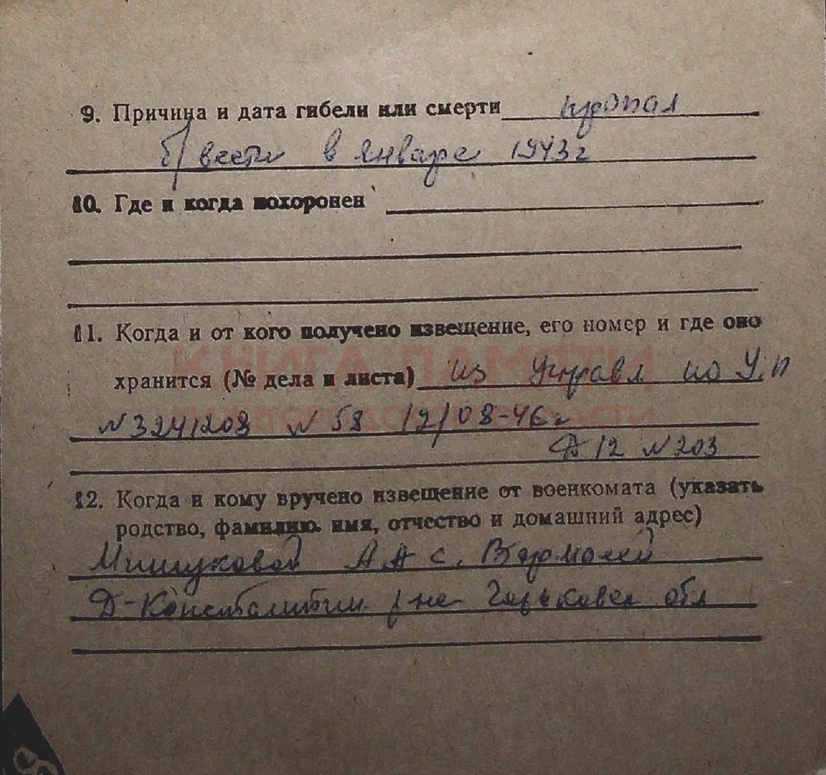 9. Причина и дата гибели или смерти пропал
б/вести в январе 1943 г
10. Где и когда похоронен
11. Когда и от кого получено извещение, его номер и где оно
КНИГА ПАМЯТИ
хранится (№ дела и листа) из Управл по У.П
N 3241208 N 58 12/08-46 г
Д 12 N 203
12. Когда и кому вручено извещение от военкомата (указать
родство, фамилию, имя, отчество и домашний адрес)
Мишуковой А А с. Вармалей
Д-Константин р-на Горьковск обл